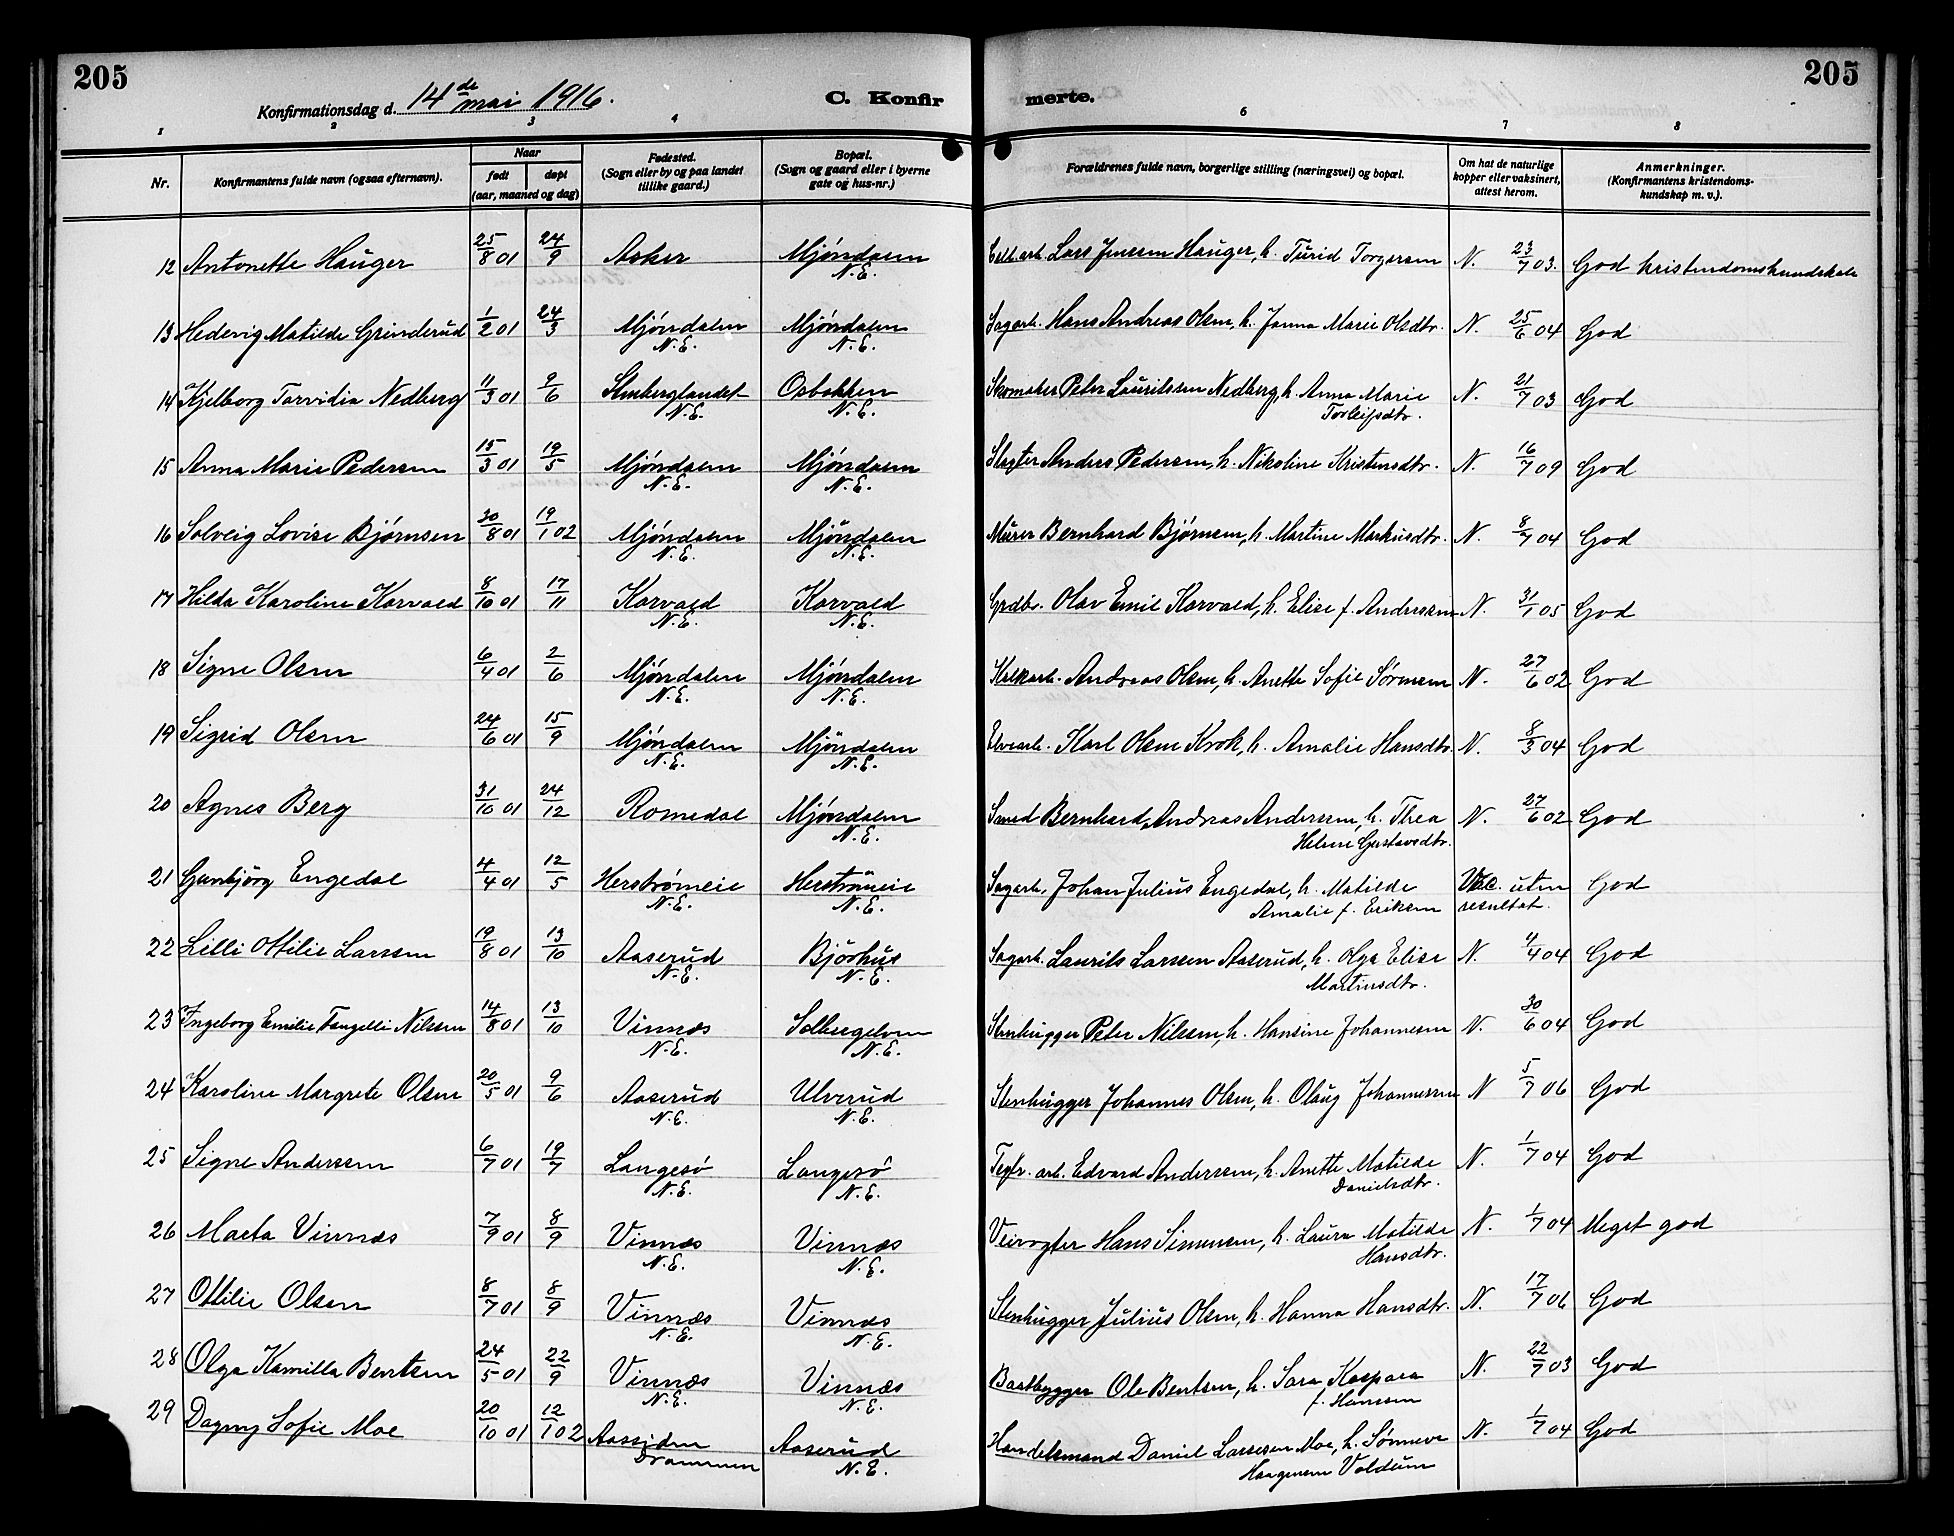 205
Konfirmationsdag d. 14de mai 1916.
C. Konfir
merte.
205
1 2 3 4 6 7 8
Nr.
Konfirmantens fulde navn (ogsaa efternavn).
Naar
født
døpt
(aar, maaned og dag)
Fødested.
(Sogn eller by og paa landet
tillike gaard.)
Bopæl.
(Sogn og gaard eller i byerne
gate og hus-nr.)
Forældrenes fulde navn, borgerlige stilling (næringsvei) og bopæl.
Om hat de naturlige
kopper eller vaksinert,
attest herom.
Anmerkninger.
(Konfirmantens kristendoms-
kundskap m. v.).
12 Antonette Hauger 25/8 01 24/9 Asker Mjøndalen Cell.arb. Lars Jensen Hauger, h. Turid Torgersen N. 23/7 03. God kristendomskundskab
N.E.
13 Hedevig Matilde Grinderud 1/2 01 24/3 Mjøndalen Mjøndalen Sagarb. Hans Andreas Olsen, h. Janna Marie Olsdtr. N. 25/6 04 God
N.E. N.E.
14 Kjelborg Torvidia Nedberg 11/3 01 9/6 Stenberglandet Osbakken Skomaker Peter Lauritssen Nedberg, h. Anna Marie N. 21/7 03 God
N.E. N.E. Torleifsdtr.
15 Anna Marie Pedersen 15/3 01 19/5 Mjøndalen Mjøndalen Slagter Anders Pedersen, h. Nikoline Kristensdtr. N. 16/7 09 God
N.E. N.E.
16 Solveig Lovise Bjørnsen 30/8 01 19/1 02 Mjøndalen Mjøndalen Murer Bernhard Bjørnsen, h. Martine Markusdtr. N. 8/7 04 God
N.E. N.E.
17 Hilda Karoline Korvald 8/10 01 17/11 Korvald Korvald Grdbr. Olav Emil Korvald, h. Elise f. Anderssen N. 31/1 05 God
N.E. N.E.
18 Signe Olsen 6/4 01 2/6 Mjøndalen Mjøndalen Kalkarb. Andreas Olsen, h. Anette Sofie Sørensen N. 27/6 02 God
N.E. N.E.
19 Sigrid Olsen 24/6 01 15/9 Mjøndalen Mjøndalen Elvearb. Karl Olsen Krok, h. Amalie Hansdtr. N. 8/3 04 God
N.E. N.E.
20 Agnes Berg 31/10 01 24/12 Romedal Mjøndalen Smed Bernhard Andreas Andersen, h. Thea N. 27/6 02 God
N.E. Helene Gustavsdtr.
21 Gunbjørg Engedal 4/4 01 12/5 Herstrømeie Herstrømeie Sagarb. Johan Julius Engedal, h. Matilde Vac. uten God
N.E. N.E. Amalie f. Eriksen resultat.
22 Lilli Ottilie Larssen 19/8 01 13/10 Aaserud Bjørhus Sagarb. Laurits Larssen Aaserud, h. Olga Elise N. 4/4 04 God
N.E. N.E. Martinsdtr.
23 Ingeborg Emilie Tangelli Nilssen 14/8 01 13/10 Vinnæs Solbergelven Stenhugger Peter Nilssen, h. Hansine Johannesen N. 30/6 04 God
N.E. N.E.
24 Karoline Margrete Olsen 20/5 01 9/6 Aaserud Ulverud Stenhugger Johannes Olsen, h. Olaug Johannessen N 5/7 06 God
N.E. N.E.
25 Signe Anderssen 6/7 01 19/7 Langesø Langesø Teglv. arb. Edvard Anderssen, h. Anette Matilde N. 1/7 04 God
N.E. N.E. Danielsdtr.
26 Marta Vinnæs 7/9 01 8/9 Vinnæs Vinnæs Veivogter Hans Simensen, h. Laura Matilde N. 1/7 04 Meget god
N.E. N.E. Hansdtr.
27 Ottilie Olsen 8/7 01 8/9 Vinnæs Vinnæs Stenhugger Julius Olsen, h. Hanna Hansdtr. N. 17/7 06 God
N.E. N.E.
28 Olga Kamilla Bentsen 24/5 01 22/9 Vinnæs Vinnæs Baatbygger Ole Bentsen, h. Sara Kaspara N. 22/7 03 God
N.E. N.E. f. Hanssen
29 Dagny Sofie Moe 20/10 01 12/1 02 Aassiden Aaserud Handelsmand Daniel Larssen Moe, h. Sønneva N. 1/7 04 God
Drammen N.E. Haagensen Voldum